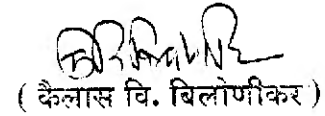 ( कैलास वि. बिलोणीकर )